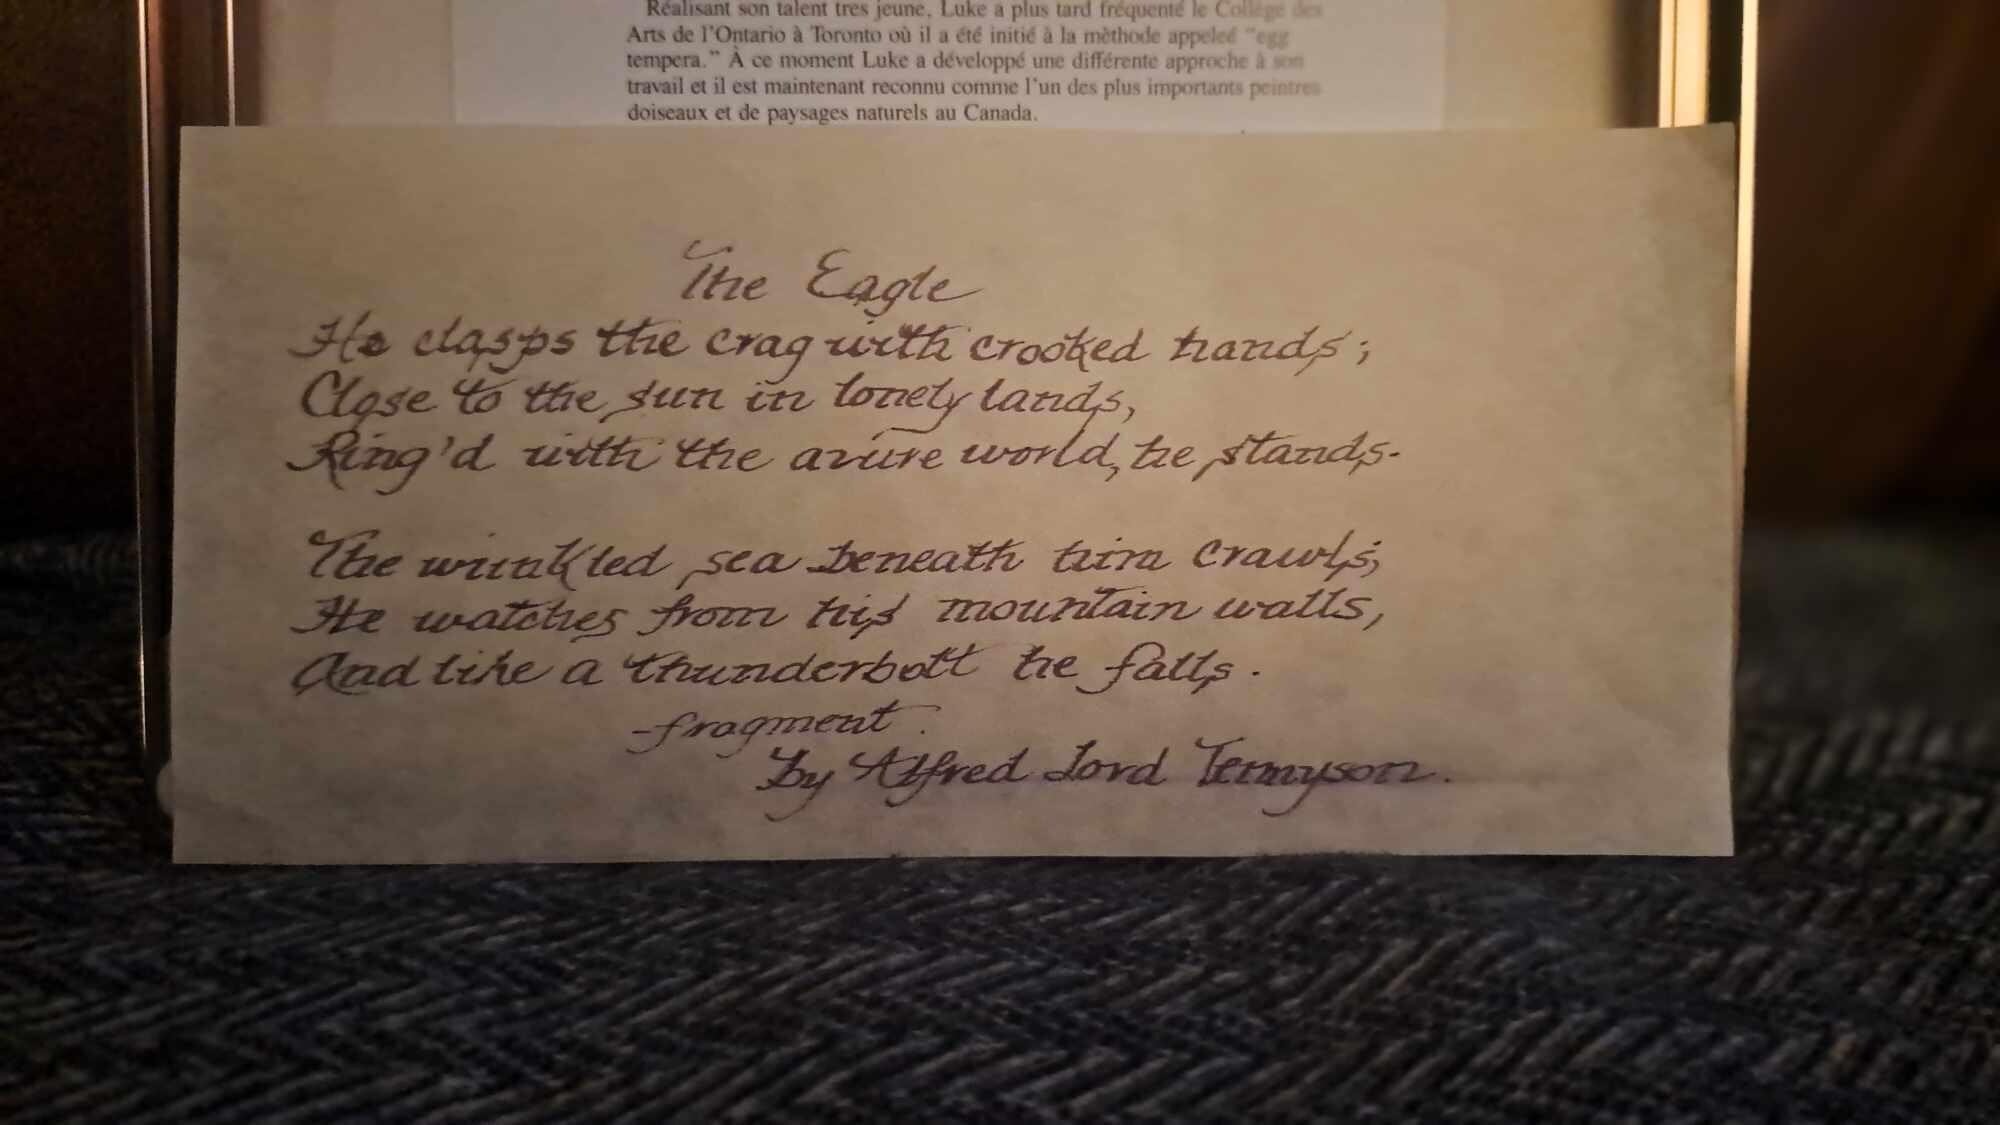 Réalisant son talent tres jeune, Luke a plus tard fréquenté le Collège des
Arts de l'Ontario à Toronto où il a été initié à la mèthode appeleé "egg
tempera." À ce moment Luke a développé une différente approche à son
travail et il est maintenant reconnu comme l'un des plus importants peintres
doiseaux et de paysages naturels au Canada.
The Eagle
He clasps the crag with crooked hands;
Close to the sun in lonely lands,
Ring'd with the azure world, he stands.
The wrinkled sea beneath him crawls;
He watches from his mountain walls,
And like a thunderbolt he falls.
-fragment.
by Alfred Lord Tennyson.